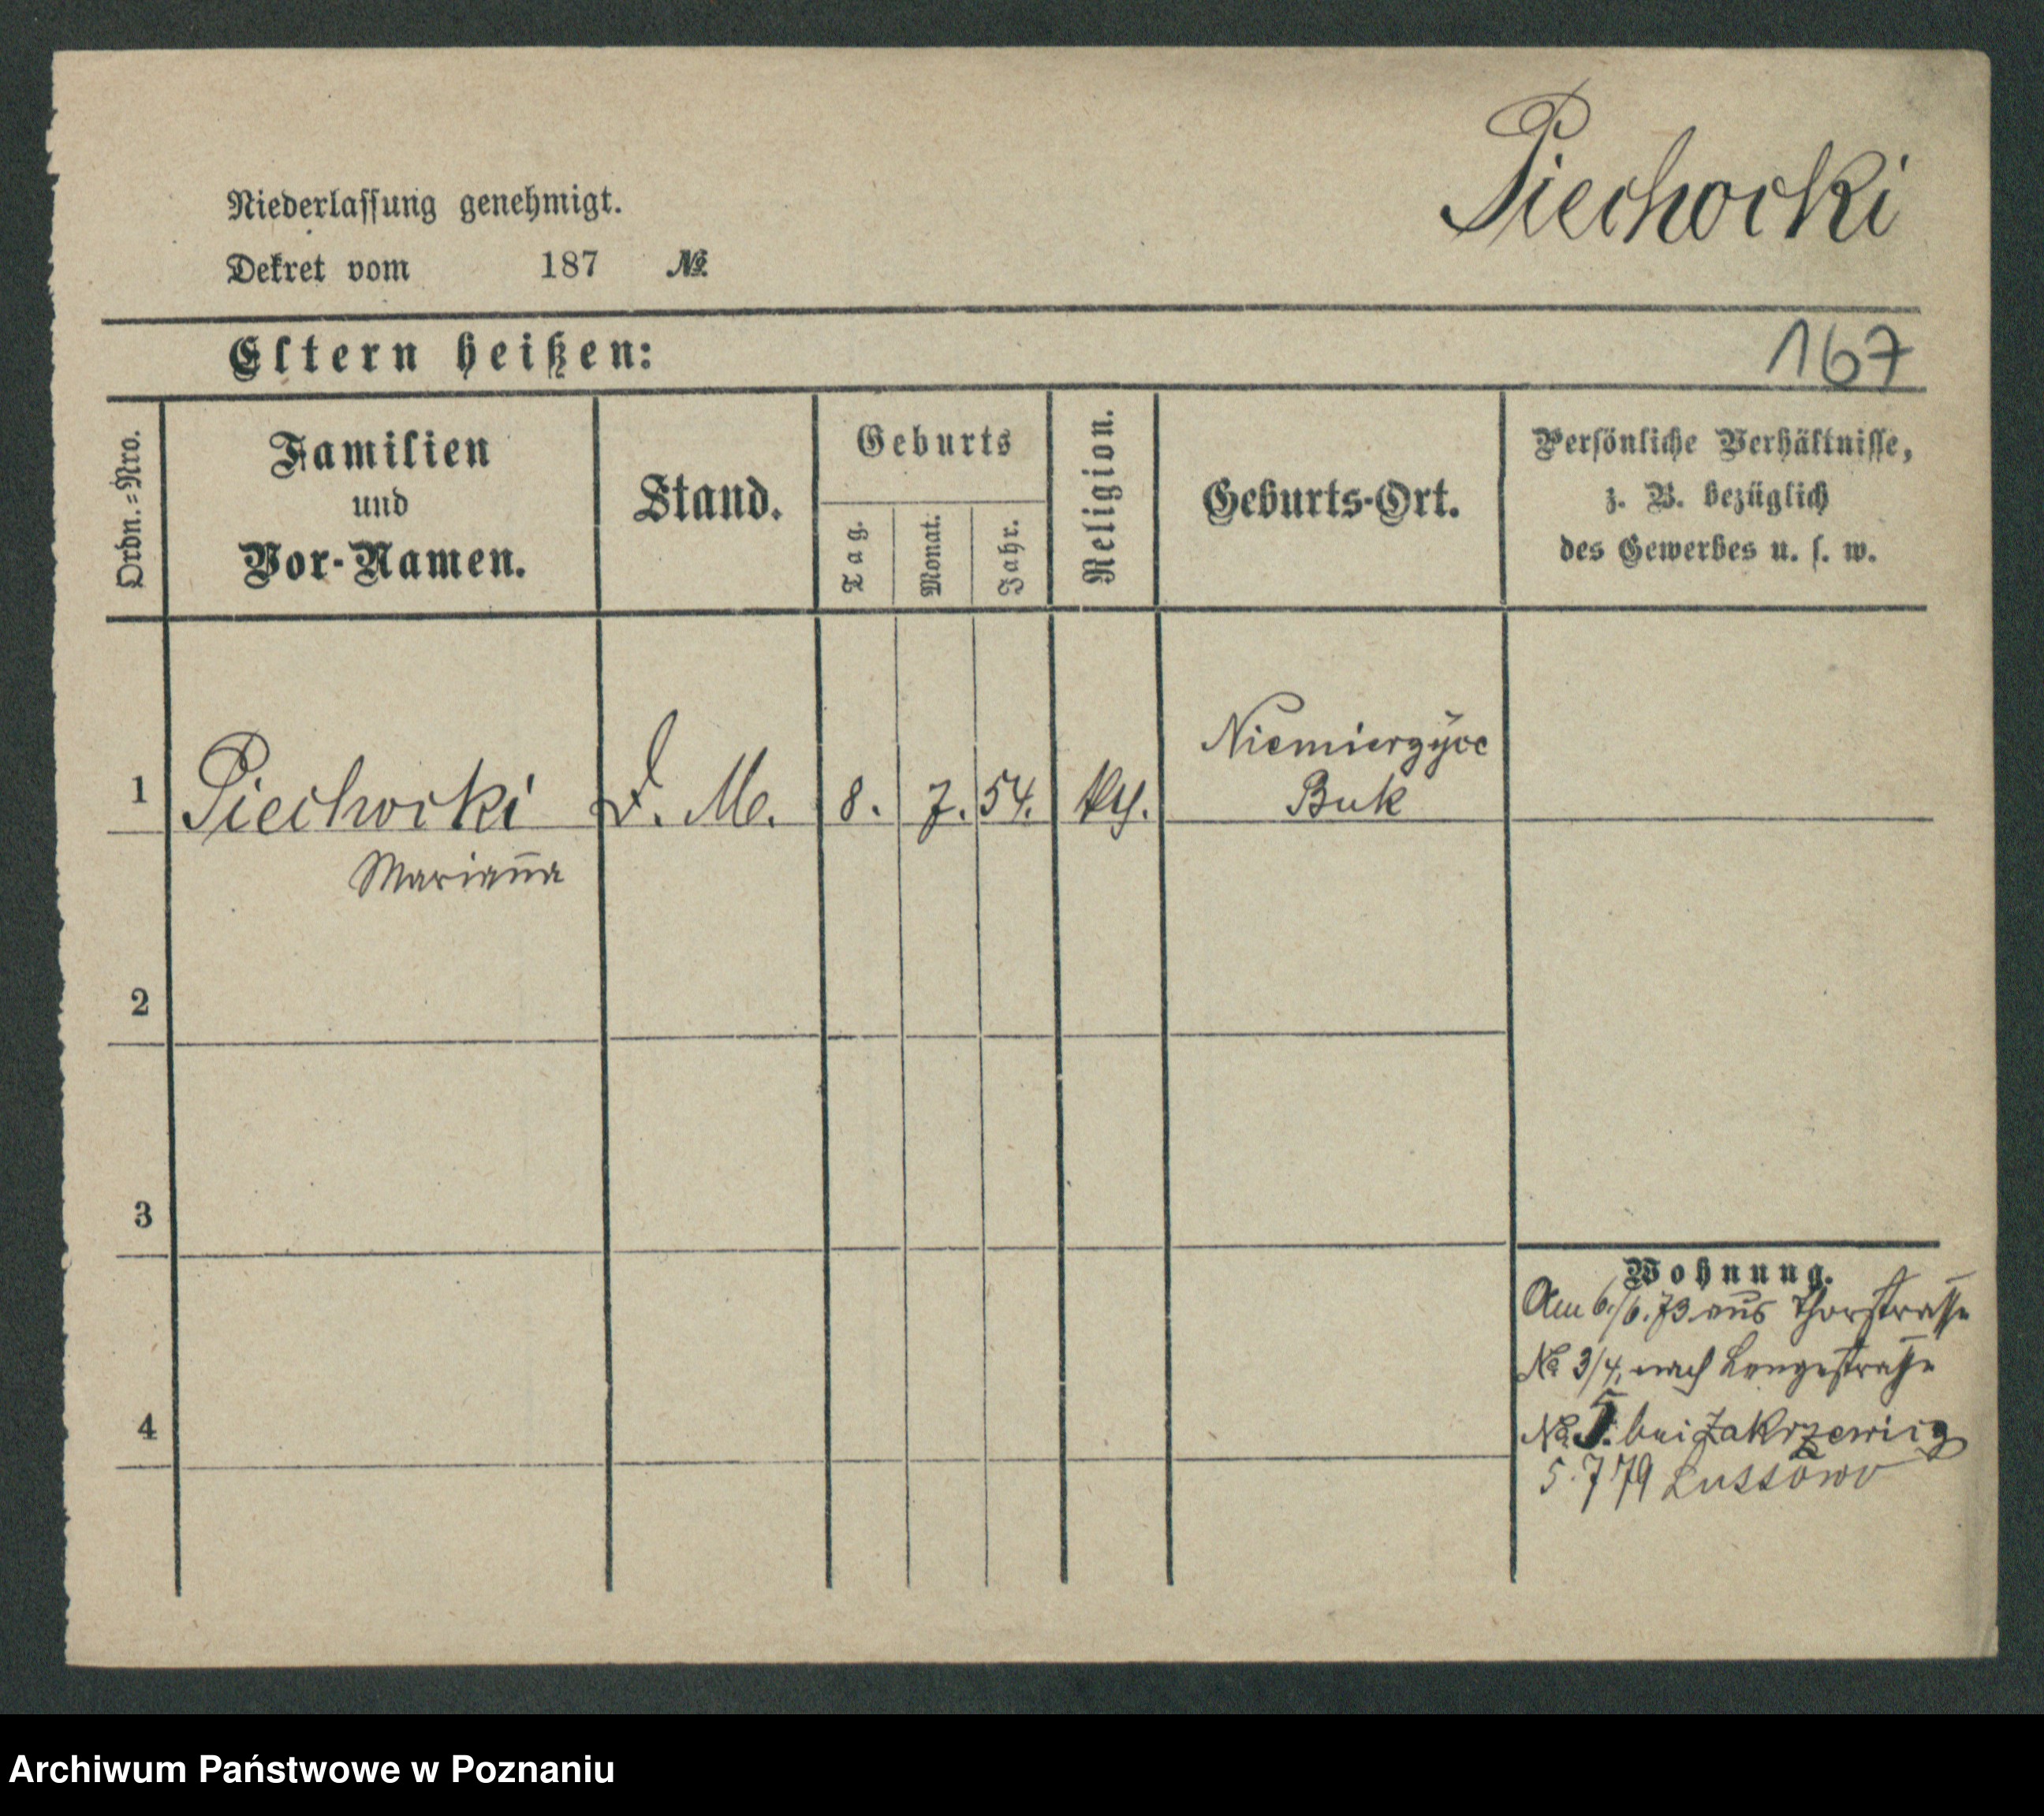 Piechocki
Niederlassung genehmigt.
Dekret vom 187 №
Eltern heißen:
167
Ordn.=Nro.
Familien
und
Vor-Namen.
Stand.
Geburts
Tag.
Monat.
Jahr.
Religion.
Geburts-Ort.
Persönliche Verhältnisse,
z. B. bezüglich
des Gewerbes u. s. w.
1 Piechocki D. M. 8. 7. 54. kth. Niemierzyce
Buk
Marian̄a
2
3
4
Wohnung.
Am 6/6.73 aus Thorstrasse
No 3/4, nach Langestraße
No 5. bei Zakrzewicz
5.7 79 Lussowo
Archiwum Państwowe w Poznaniu